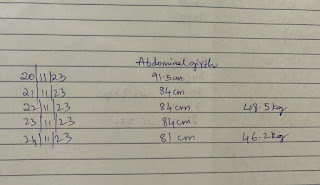 Abdominal girth
20/11/23 91.5cm
21/11/23 84cm
22/11/23 84cm 48.5kg
23/11/23 84cm.
24/11/23 81 cm 46.2kg